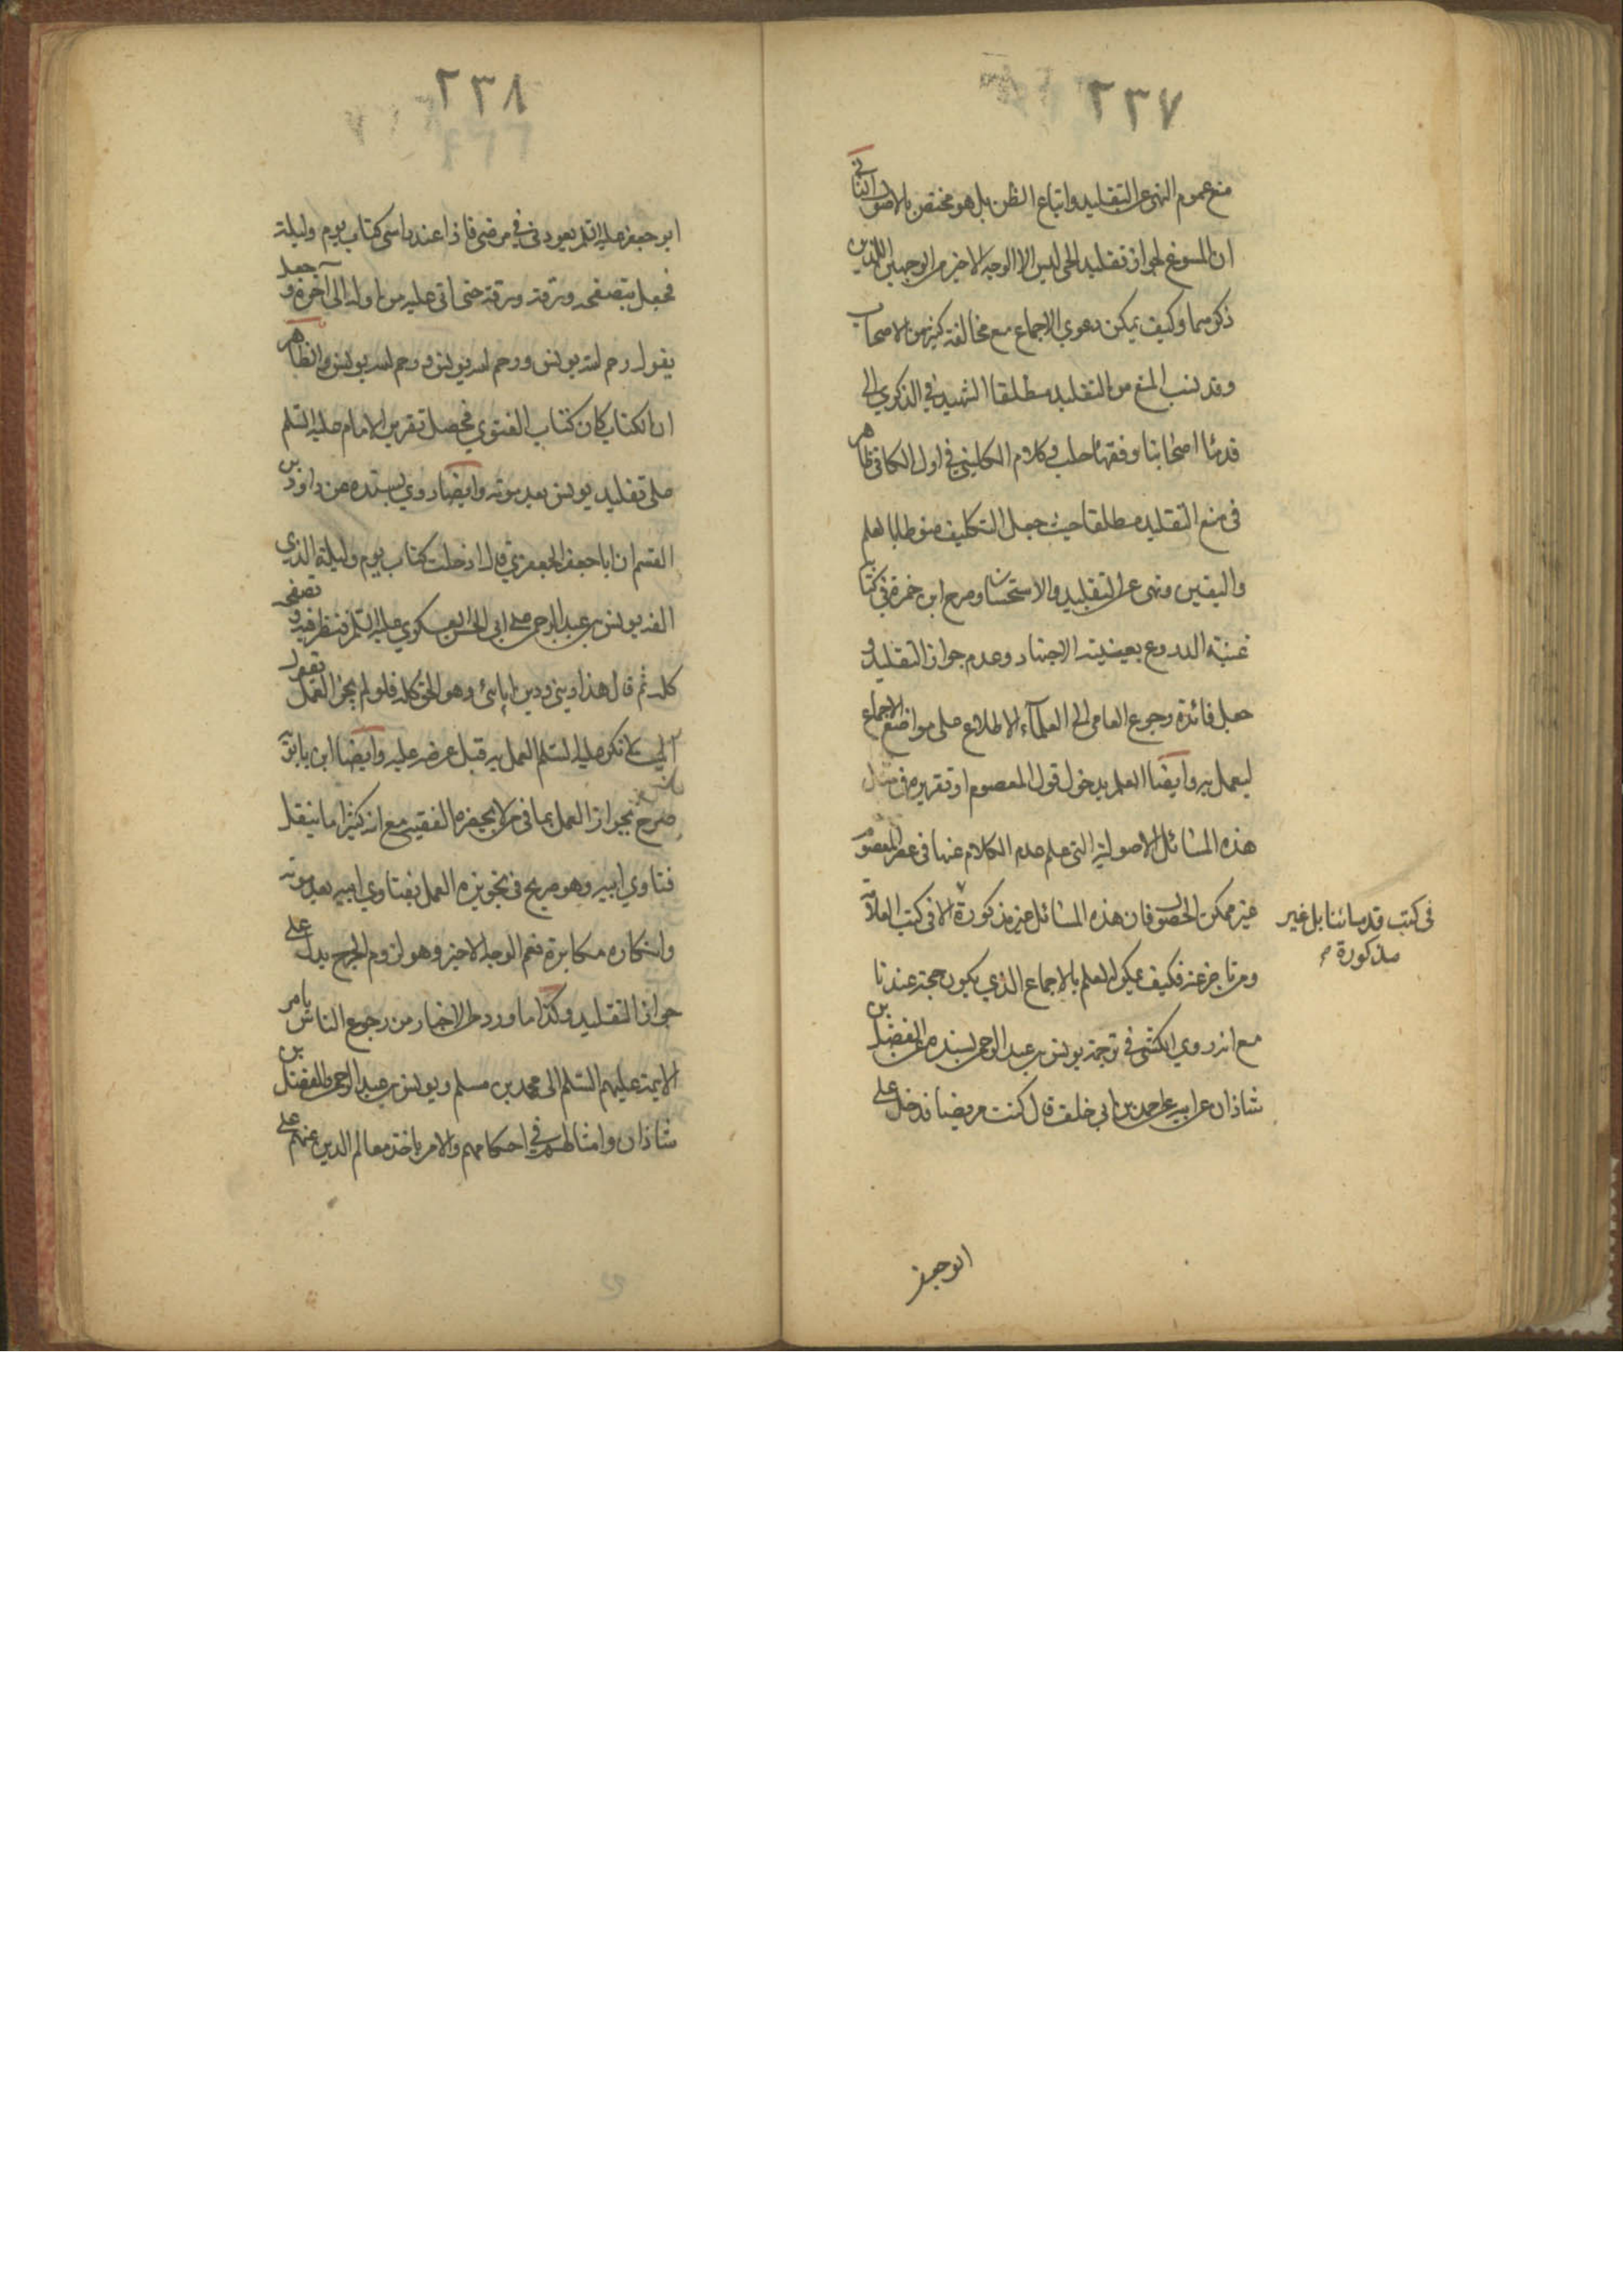 ٢٣٧
منع عموم النهى عن التقليد واتباع الظن بل هو مختص بالاصول الثانى
ان المسوغ لجواز تقليد الحى ليس الا الوجه الاخير من الوجهين اللذين
ذكرهما وكيف يمكن دعوي الاجماع مع مخالفة كثير من الاصحاب
وقد نسب المنع من التقليد مطلقا الشهيد فى الذكري الى
قدماء اصحابنا وفقهاء حلب وكلام الكلينى فى اول الكافى ظاهر
فى منع التقليد مطلقا حيث جعل التكليف منوطا بالعلم
واليقين ونهى عن التقليد والاستحسان وصرح ابن حمزة فى كتاب
غنية النزوع بعينية الاجتهاد وعدم جواز التقليد و
جعل فائدة رجوع العامى الى العلمآء الاطلاع على مواضع الاجماع
ليعمل به وايضا العلم بدخول قول المعصوم او تقريره فى مثل
هذه المسائل الاصولية التى علم عدم الكلام عنها فى عصر المعصوم
غير ممكن الحصول فان هذه المسائل غير مذكورة الا فى كتب العلامة
فى كتب قدمائنا بل غير
مذكورة صح
ومن تاخر عنه فكيف يمكن العلم بالاجماع الذي يكون حجة عندنا
مع انه روي الكشى فى ترجمة يونس بن عبد الرحمن بسنده عن الفضل بن
شاذان عن ابيه عن احمد بن ابى خلف قال كنت مريضا فدخل على
ابو جعفر
٢٣٨
ابو جعفر عليه السلم يعودنى فى مرضى فاذا عند راسى كتاب يوم وليلة
فجعل يتصفحه ورقة ورقة حتى اتى عليه من اوله الى آخره وجعل
يقول رحم الله يونس ورحم الله يونس ورحم الله يونس والظاهر
ان الكتاب كان كتاب الفتوي فحصل تقرير الامام عليه السلم
على تقليد يونس بعد موته وايضا روي بسنده عن داود بن
القسم ان ابا جعفر الجعفري قال ادخلت كتاب يوم وليلة الذي
الفه يونس بن عبد الرحمن على ابى الحسن العسكري عليه السلم فنظر فيه وتصفحه
كله ثم قال هذا دينى ودين آبائى وهو الحق كله فلو لم يجز العمل بقول
الميت لانكر عليه السلم العمل به قبل عرضه عليه وايضا ابن بابويه
صرح بجواز العمل بما فى من لا يحضره الفقيه مع انه كثيرا ما ينقل
فتاوي ابيه وهو صريح فى تجويزه العمل بفتاوي ابيه بعد موته
وانكاره مكابرة نعم الوجه الاخير وهو لزوم الحرج يدل على
جواز التقليد وكذا ما ورد فى الاخبار من رجوع الناس بامر
الايمة عليهم السلم الى محمد بن مسلم ويونس بن عبد الرحمن والفضل بن
شاذان وامثالهم فى احكامهم والامر باخذ معالم الدين عنهم على